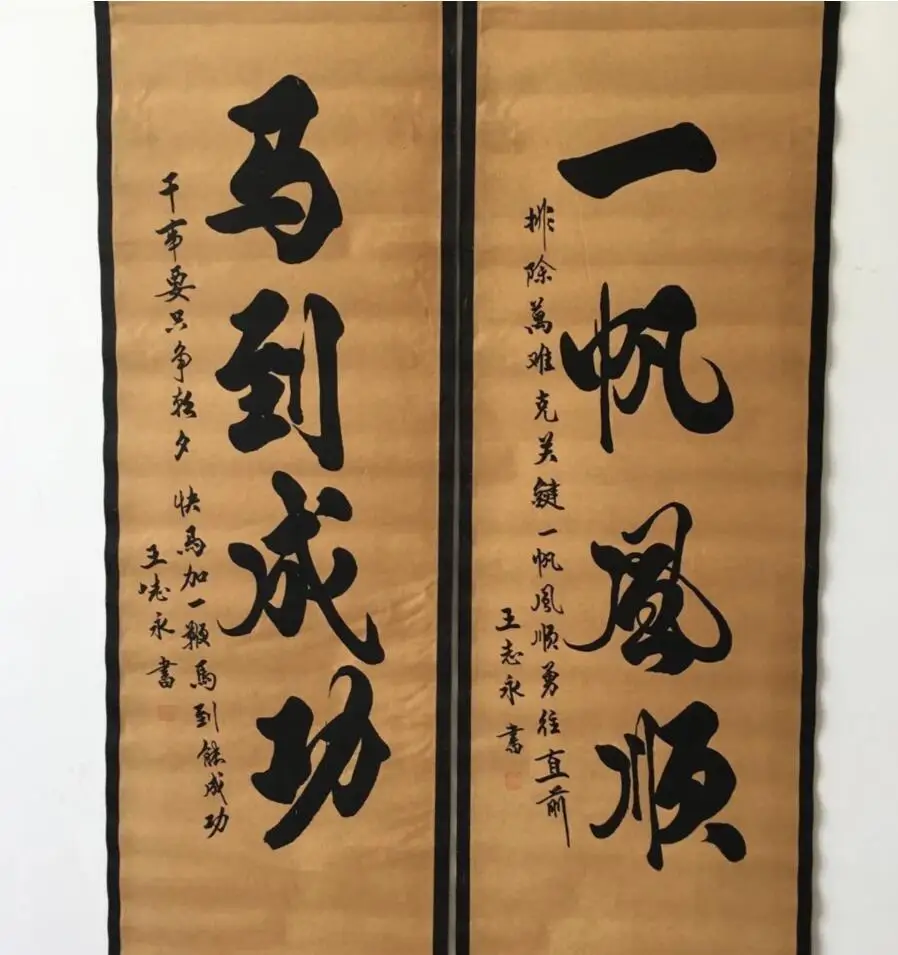 一帆風顺
排除萬难克关键一帆風顺勇往直前
王志永書
马到成功
干事要只争朝夕 快馬加一鞭馬到能成功
王志永書